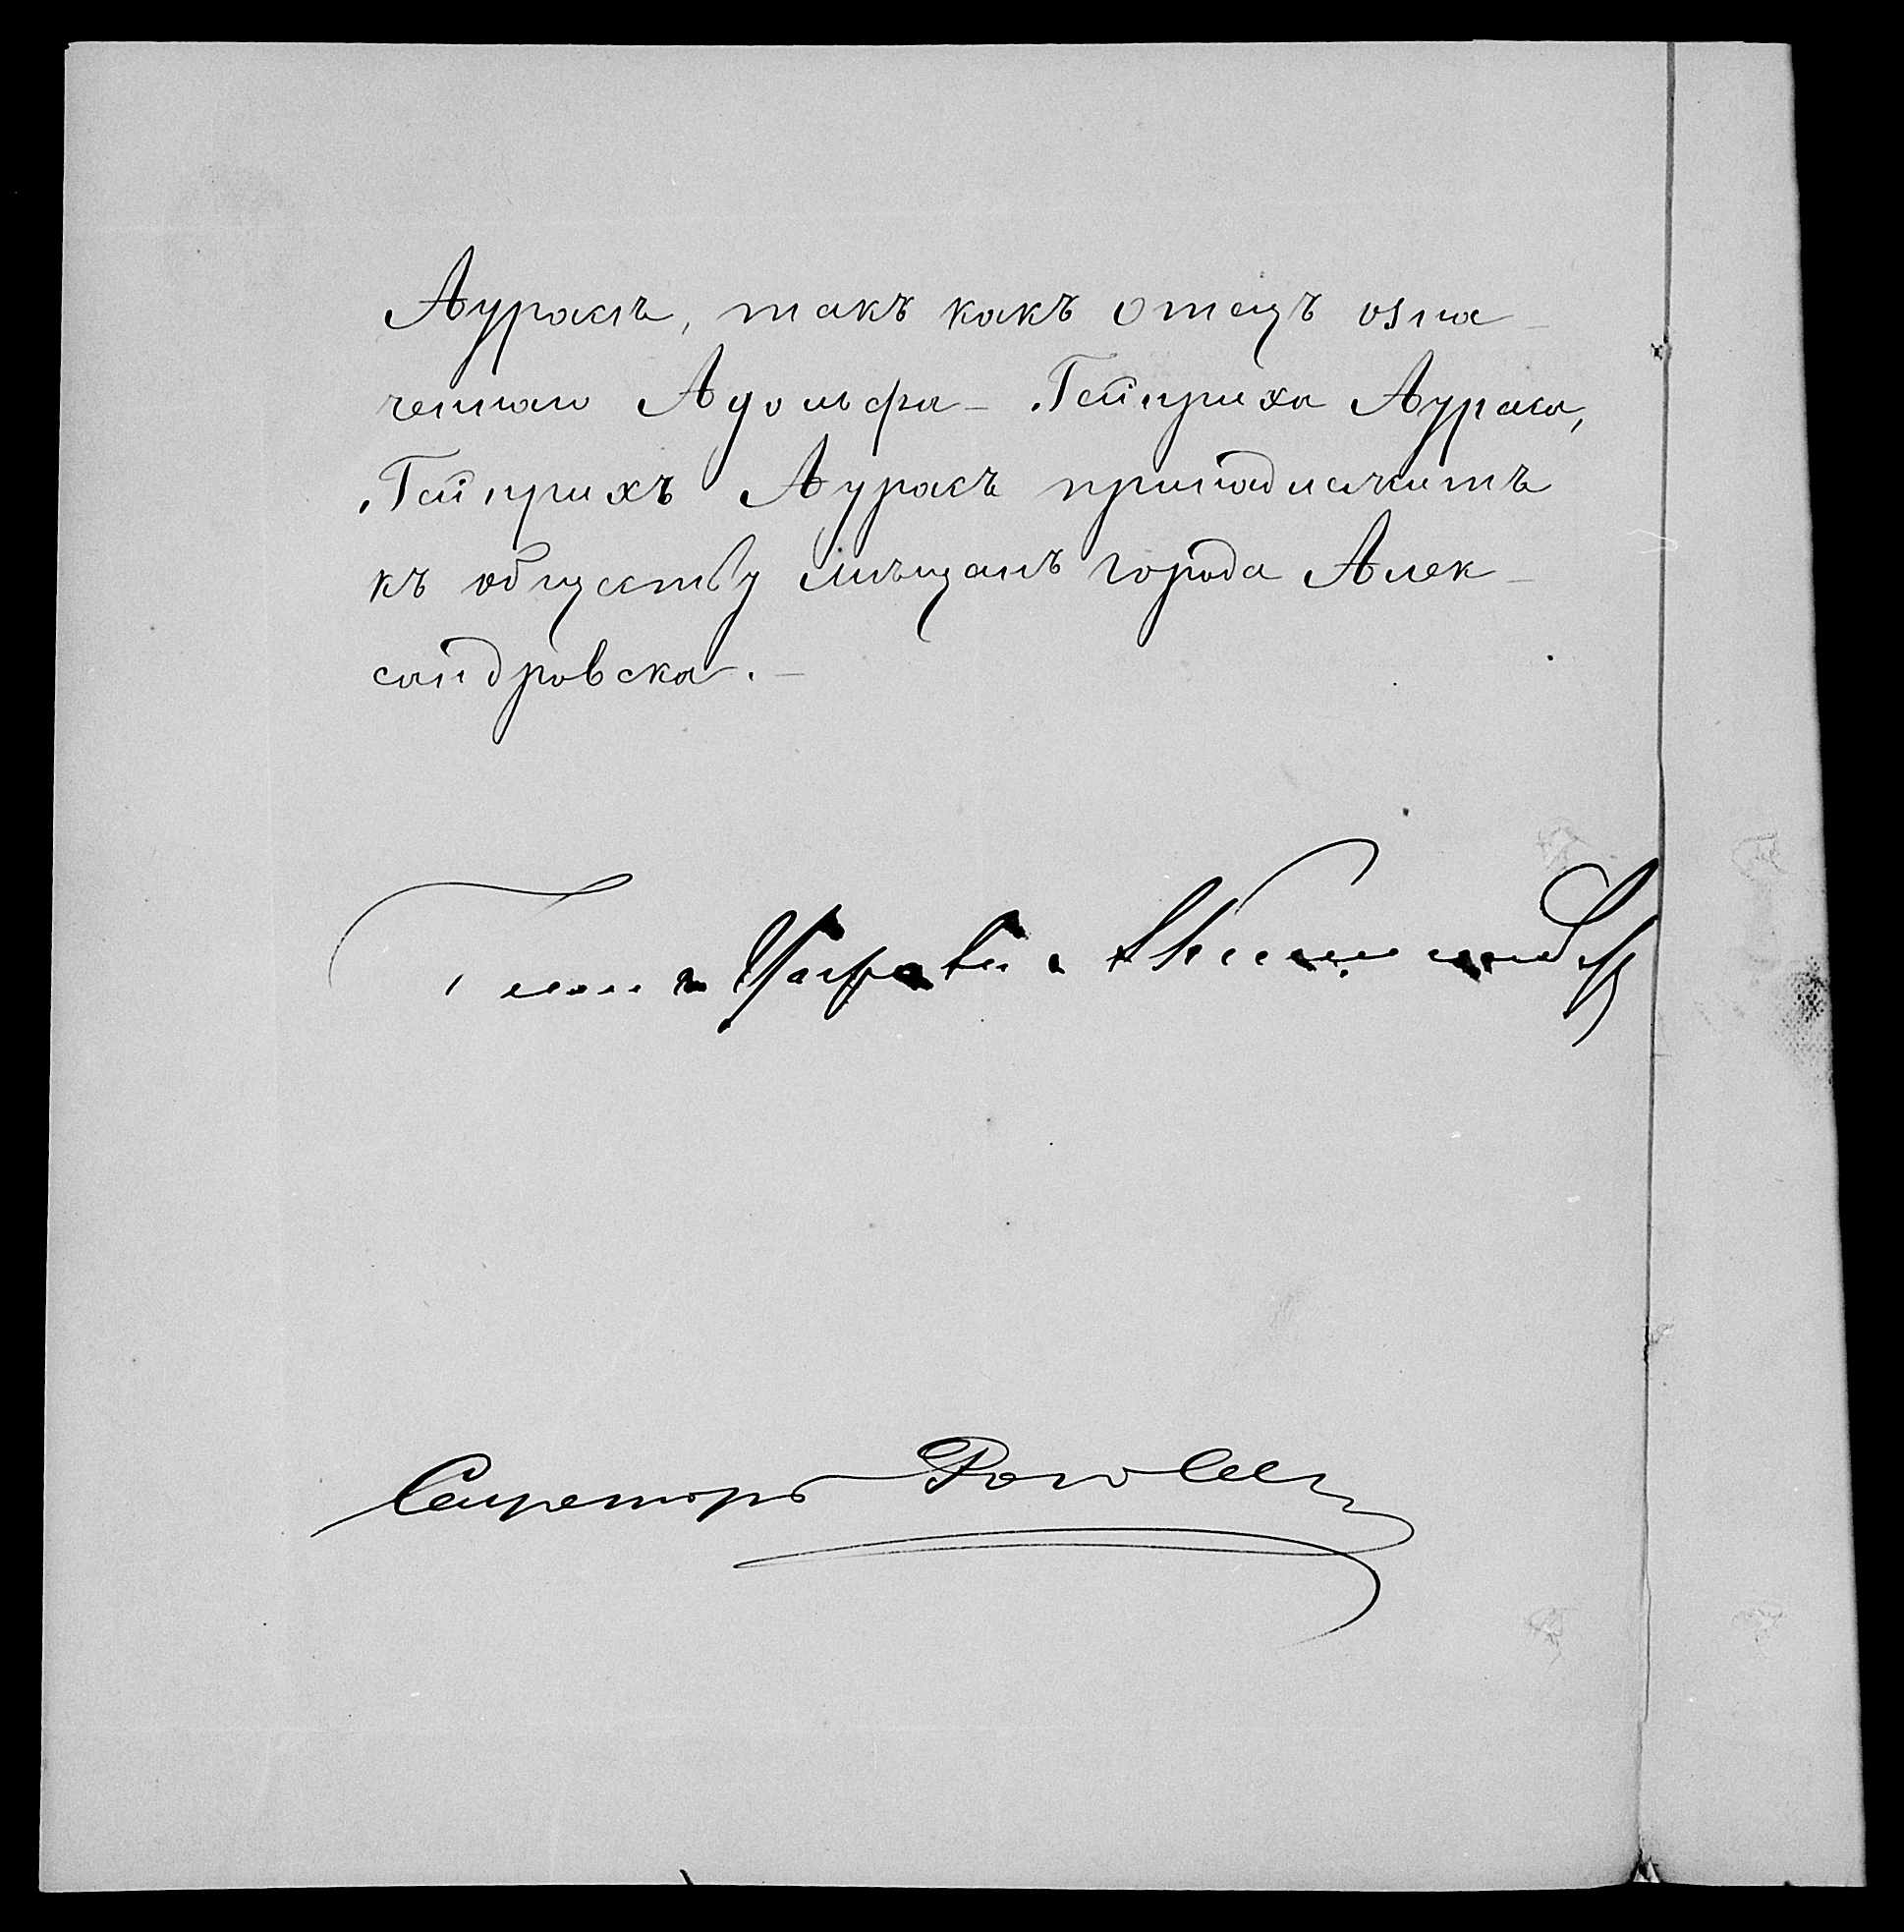 Ауракъ, такъ какъ отецъ озна-
ченнаго Адольфа-Гейнриха Аурака,
Гейнрихъ Ауракъ принадлежитъ
къ обществу мѣщанъ города Алек-
сандровска.-
Членъ Управы
Секретарь